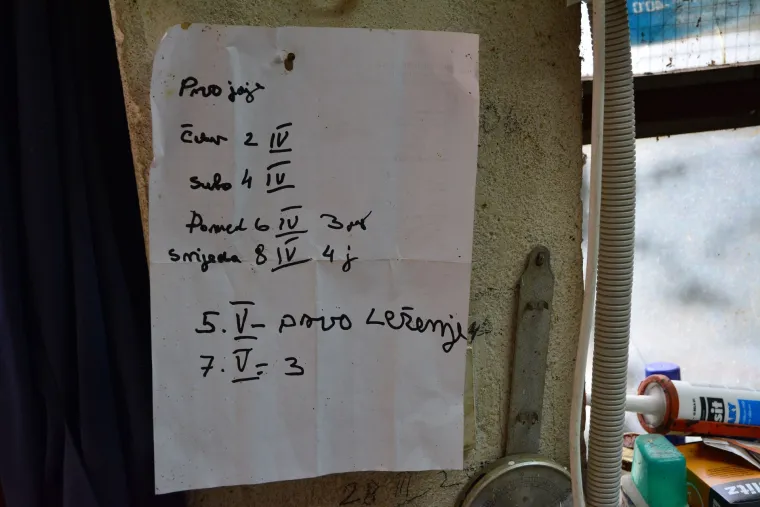 Prvo jaje
Čet 2 IV
Subo 4 IV
Poned 6 IV 3
Srijeda 8 IV 4 j
5. V - prvo Leženje
7. V = 3
28 II 2
sit
litz